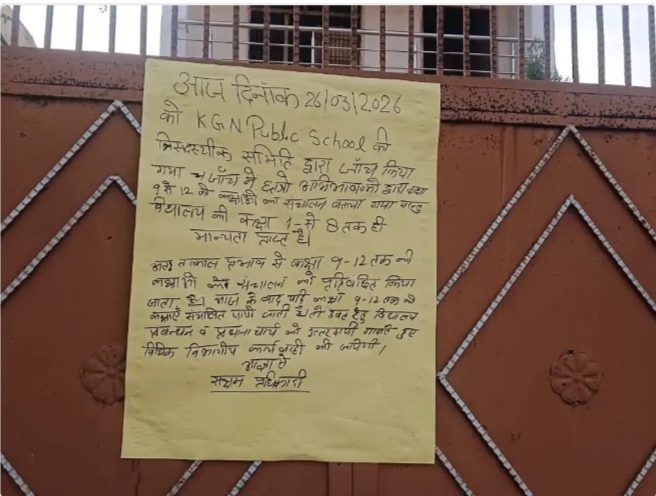 आज दिनांक 26/03/2026
को KGN Public School की
त्रिसदस्यीक समिति द्वारा जाँच किया
गया जाँच में छात्रों अभिभावकों द्वारा
9 से 12 के कक्षाओं का संचालन बताया गया परन्तु
विद्यालय की कक्षा 1 से 8 तक ही
मान्यता प्राप्त है।
अतः तत्काल प्रभाव से कक्षा 9-12 तक की
कक्षाओं के संचालन को प्रतिबंधित किया
जाता है। आज के बाद यदि कक्षा 9-12 तक की
कक्षाएँ संचालित पायी जाती है तो उक्त हेतु विद्यालय
प्रबन्धन व प्रधानाचार्य को उत्तरदायी मानते हुए
विधिक विभागीय कार्यवाही की जायेगी।
आज्ञा से
सक्षम अधिकारी